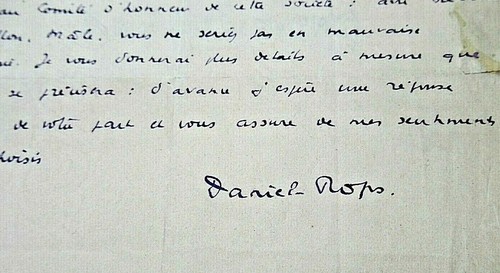 au Comité d'honneur de cette société : avec
llon, Mâle, vous ne seriez pas en mauvaise
Je vous donnerai plus de détails à mesure que
se précisera : d'avance j'espère une réponse
de votre part et vous assure de mes sentiments
choisis
Daniel-Rops.